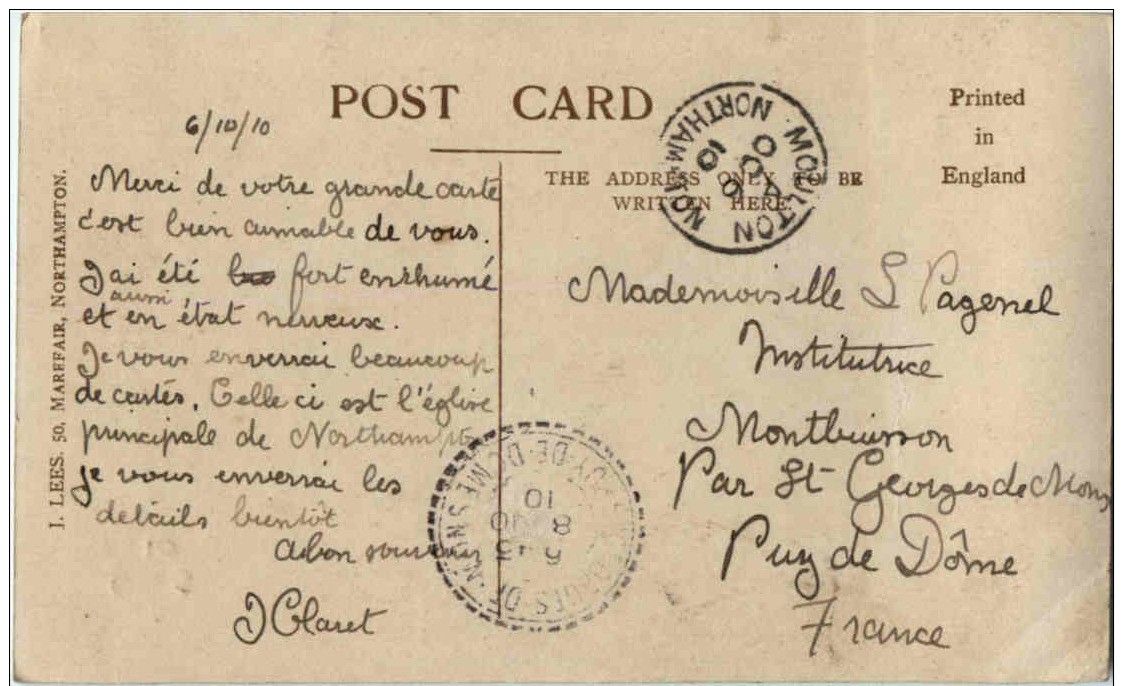 POST CARD
6/10/10
Printed
in
England
THE ADDRESS ONLY TO BE
WRITTEN HERE.
I. LEES. 50, MAREFAIR, NORTHAMPTON.
Merci de votre grande carte
c'est bien aimable de vous.
J'ai été fort enrhumé
aussi,
et en état nerveux.
Je vous enverrai beaucoup
de cartes. Celle ci est l'église
principale de Northampton
je vous enverrai les
détails bientôt
bon souvenir
J Claret
Mademoiselle L Pagenel
Institutrice
Montbuisson
Par St Georges de Mons
Puy de Dôme
France
MOULTON NORTHAMPTON
A
OC 6
10
PUY-DE-DOME
8 10
10